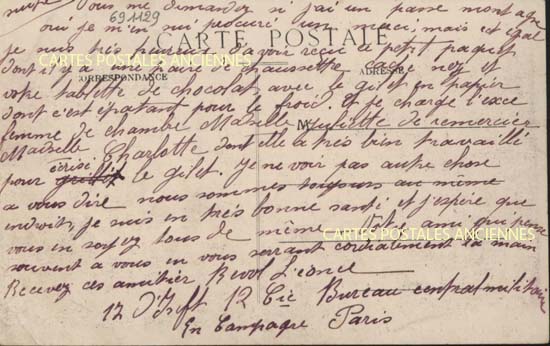 Vous me demandez si j'ai un passe montagne
691129
oui je m'en sui procuré un merci, mais est égal
CARTE POSTALE
je suis très heureux d'avoir reçu ce petit paquet
CARTES POSTALES ANCIENNES
dont il y a une paire de chaussette cache nez et
CORRESPONDANCE
ADRESSE
votre tablette de chocolat avec le gilet en papier
dont c'est épatant pour le froid et je charge l'exce
femme de chambre Madselle Juliette de remercier
M
Madselle Charlotte dont elle a très bien travaillé
pour le gilet. Je ne voir pas autre chose
a vous dire nous sommes toujours au même
endroit, je suis en très bonne santé et j'espère que
vous en soyez tous de même ami qui pense
CARTES POSTALES ANCIENNES
souvent a vous en vous serrant cordialement la main
Recevez ces amitier
12 12 Cie Bureau central militaire
En Campagne Paris